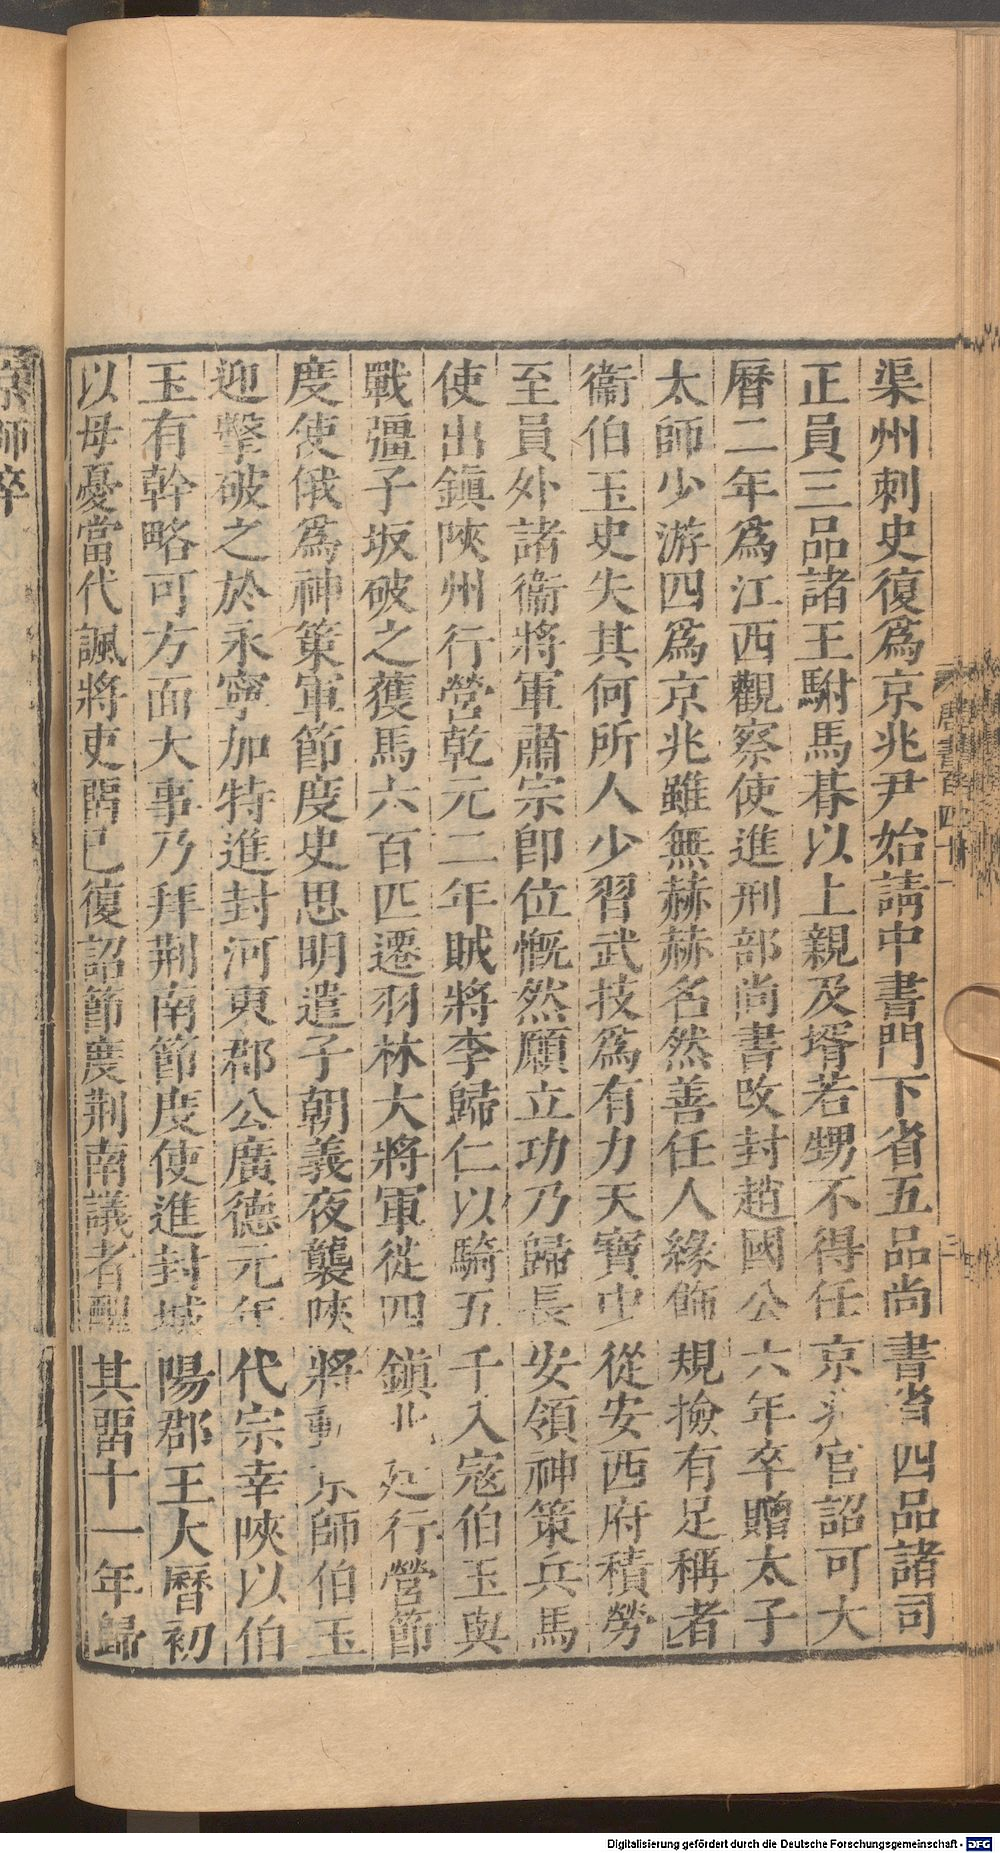 渠州刺史復爲京兆尹始請中書門下省五品尚書省四品諸司
正員三品諸王駙馬朞以上親及壻若甥不得任京兆官詔可大
曆二年爲江西觀察使進刑部尚書改封趙國公六年卒贈太子
太師少游四爲京兆雖無赫赫名然善任人緣飾規撿有足稱者
衞伯玉史失其何所人少習武技爲有力天寶中從安西府積勞
至員外諸衞將軍肅宗卽位慨然願立功乃歸長安領神策兵馬
使出鎭陜州行營乾元二年賊將李歸仁以騎五千入寇伯玉與
戰彊子坂破之獲馬六百匹遷羽林大將軍從四鎭北庭行營節
度使俄爲神策軍節度史思明遣子朝義夜襲陜將動京師伯玉
迎擊破之於永寧加特進封河東郡公廣德元年代宗幸陜以伯
玉有幹略可方面大事乃拜荆南節度使進封城陽郡王大曆初
以母憂當代諷將吏畱己復詔節度荆南議者醜其畱十一年歸
京師卒
唐書百四十一
二
Digitalisierung gefördert durch die Deutsche Forschungsgemeinschaft - DFG